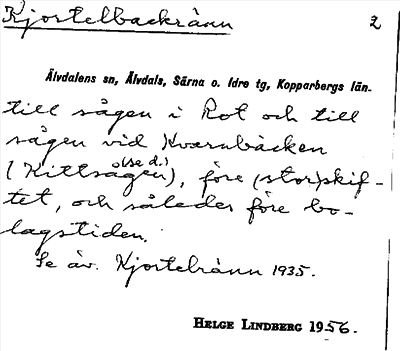 Kjortelbackränn 2
Älvdalens sn, Älvdals, Särna o. Idre tg, Kopparbergs län.
till sågen i Rot och till
sågen vid Kvarnbäcken
(Kittsågen (se d.)), före (stor)skif-
tet, och således före bo-
lagstiden.
Se äv. Kjortelränn 1935.
HELGE LINDBERG 1956.